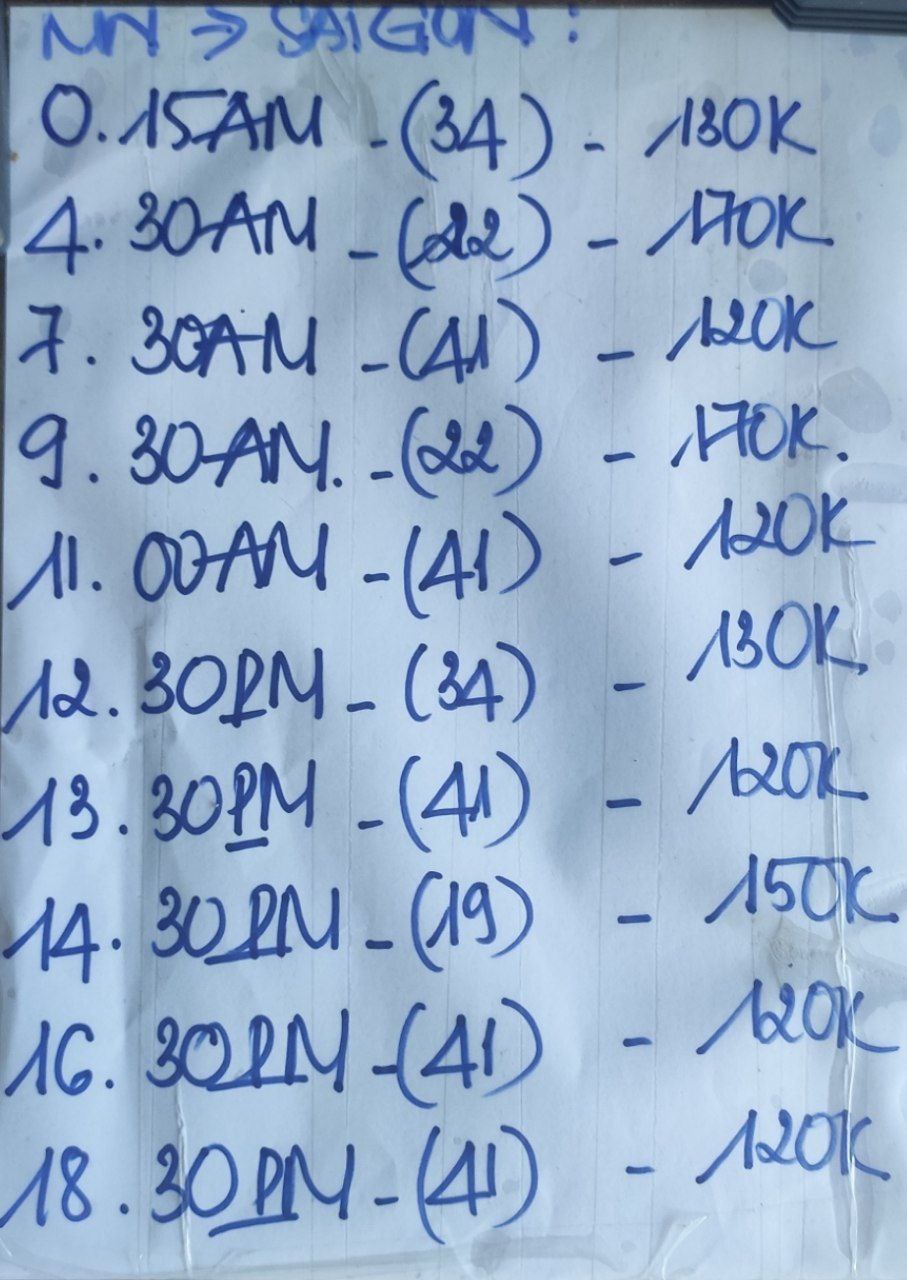 MN → SAIGON:
0.15AM - (34) - 130K
4.30AM - (22) - 170K
7.30AM - (41) - 120K
9.30AM. - (22) - 170K.
11.00AM - (41) - 120K
12.30PM - (34) - 130K
13.30PM - (41) - 120K
14.30PM - (19) - 150K
16.30PM - (41) - 120K
18.30PM - (41) - 120K